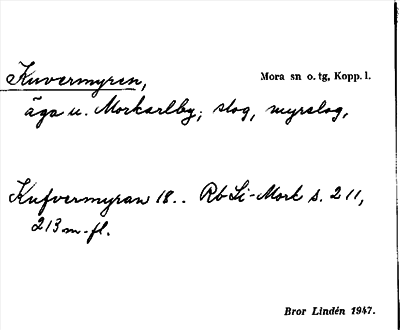 Kuvermyren,
Mora sn o. tg, Kopp. l.
äga u. Morkarlby; slog, myrslog,
Kufvermyran 18.. Rb Li-Mork s. 211,
213 m-fl.
Bror Lindén 1947.